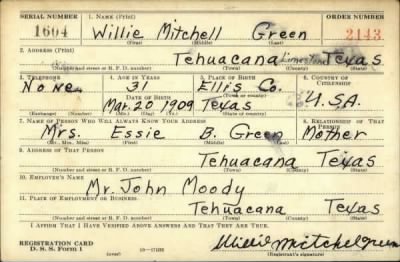 SERIAL NUMBER 1. NAME (Print) ORDER NUMBER
1604 Willie Mitchell Green 2143
(First) (Middle) (Last)
2. ADDRESS (Print)
Tehuacana Limestone Texas
(Number and street or R. F. D. number) (Town) (County) (State)
3. TELEPHONE 4. AGE IN YEARS 5. PLACE OF BIRTH 6. COUNTRY OF CITIZENSHIP
None 31 Ellis Co.
DATE OF BIRTH
Mar. 20 1909 Texas U.S.A.
(Exchange) (Number) (Mo.) (Day) (Yr.) (State or country)
7. NAME OF PERSON WHO WILL ALWAYS KNOW YOUR ADDRESS 8. RELATIONSHIP OF THAT PERSON
Mrs. Essie B. Green Mother
(Mr., Mrs., Miss) (First) (Middle) (Last)
9. ADDRESS OF THAT PERSON
Tehuacana Texas
(Number and street or R. F. D. number) (Town) (County) (State)
10. EMPLOYER'S NAME
Mr. John Moody
11. PLACE OF EMPLOYMENT OR BUSINESS
Tehuacana Texas
(Number and street or R. F. D. number) (Town) (County) (State)
I AFFIRM THAT I HAVE VERIFIED ABOVE ANSWERS AND THAT THEY ARE TRUE.
REGISTRATION CARD
D. S. S. Form 1 (over) Willie Mitchel Green
(Registrant's signature)